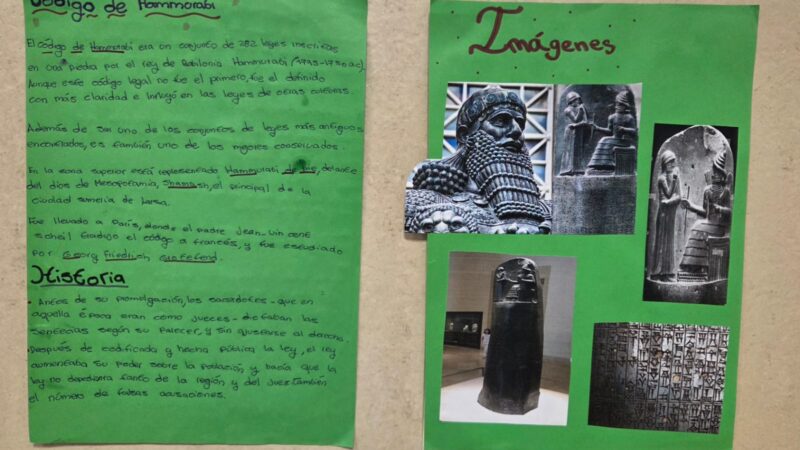 Código de Hammurabi
El código de Hammurabi era un conjunto de 282 leyes inscritas
en una piedra por el rey de Babilonia Hammurabi (1795-1750 a.c).
Aunque este código legal no fue el primero, fue el definido
con más claridad e influyó en las leyes de otras culturas.
Además de ser uno de los conjuntos de leyes más antiguos
encontrados, es también uno de los mejores conservados.
En la zona superior está representado Hammurabi de pie, delante
del dios de Mesopotamia, Shamash, el principal de la
ciudad sumeria de Larsa.
Fue llevado a París, donde el padre Jean-Vin cent
Scheil tradujo el código a francés, y fue estudiado
por Georg Friedrich
Historia
• Antes de su promulgación, los sacerdotes - que en
aquella época eran como jueces - dictaban las
sentencias según su parecer, y sin ajustarse al derecho.
• Después de codificada y hecha pública la ley, el rey
aumentaba su poder sobre la población, y hacía que la
ley no dependiera tanto de la región y del juez también
el número de falsas acusaciones.
Imágenes